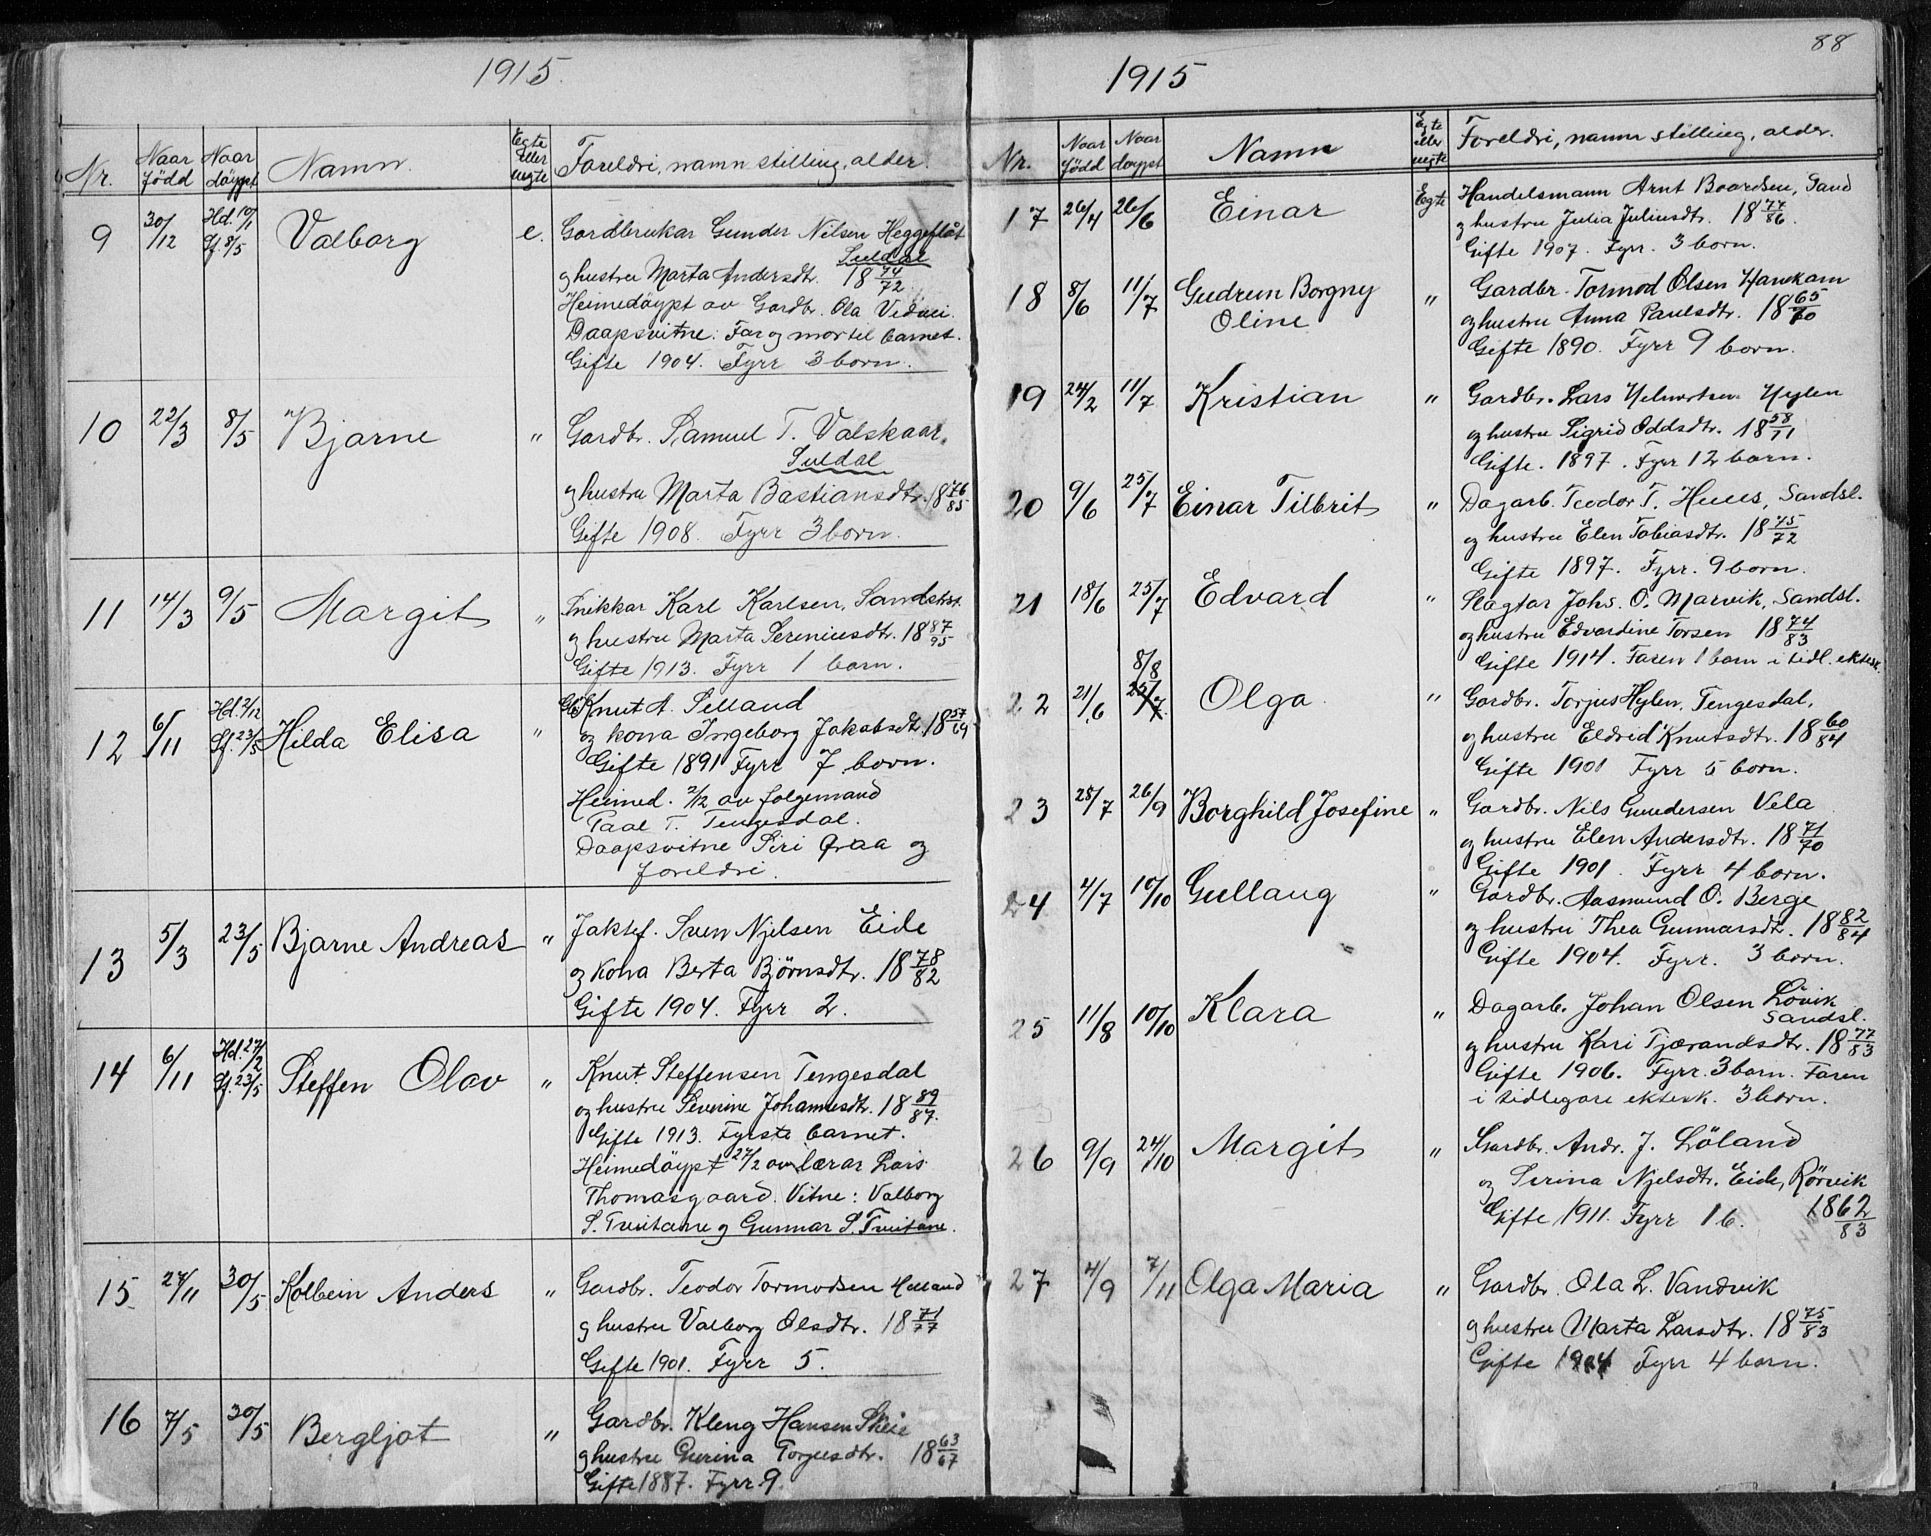 1915.
Nr. Naar född Naar döypt Namn. Egte eller uegte Foreldri, namn stilling, alder.
9 30/12 Hd. 10/1 Sf. 8/5 Valborg e. Gardbrukar Gunder Nilsen Heggeflåt
Suldal
og hustru Marta Andersdtr. 18 74/72
Heimedöypt av Gardbr. Ola Vidvei.
Daapsvitne: Far og mor til barnet.
Gifte 1904. Fyrr 3 born.
10 22/3 8/5 Bjarne " Gardbr. Samuel T. Valskaar.
Suldal
og hustru Marta Bastiansdtr. 18 76/85
Gifte 1908. Fyrr 3 born.
11 14/3 9/5 Margit " Snikkar Karl Karlsen, Sandslst.
og hustru Marta Sereniusdtr. 18 87/95
Gifte 1913. Fyrr 1 barn.
12 6/11 Hd. 2/12 Sf. 23/5 Hilda Elisa " Gb. Knut A. Selland
og kona Ingeborg Jakobsdtr. 18 57/69
Gifte 1891 Fyrr 7 born.
Heimed. 2/12 av folgemand
Paal T. Tengesdal.
Daapsvitne Siri Qraa og
foreldri.
13 5/3 23/5 Bjarne Andreas " Jaktef. Sven Njelsen Eide
og kona Berta Björnsdtr. 18 78/82
Gifte 1904. Fyrr 2.
14 6/11 Hd. 27/2 Sf. 23/5 Steffen Olav " Knut Steffensen Tengesdal
og hustru Severine Johannesdtr. 18 89/87.
Gifte 1913. Fyrste barnet.
Heimedöypt 27/2 av lærar Lars
Thomasgaard. Vitne: Valborg
S. Tveitane og Gunnar S. Tveitane.
15 27/11 30/5 Kolbein Anders " Gardbr. Teodor Tormodsen Helland
og hustru Valborg Olsdtr. 18 71/77
Gifte 1901. Fyrr 5.
16 7/5 30/5 Bergljot " Gardbr. Kleng Hansen Skeie
og hustru Gurina Torjusdtr. 18 63/67
Gifte 1887. Fyrr 9.
88
1915
Nr. Naar född Naar döypt Namn Egte eller uegte Foreldri, namn stilling, alder.
17 26/4 26/6 Einar Egte Handelsmann Arnt Baardsen, Sand
og hustru Julia Juliusdt. 18 77/86.
Gifte 1907. Fyrr. 3 born.
18 8/6 11/7 Gudrun Borgny " Gardbr. Tormod Olsen Havrkam
Oline og hustru Anna Paulsdtr. 18 65/70
Gifte 1890. Fyrr 9 born.
19 24/2 11/7 Kristian " Gardbr. Lars Helmertsen Hylen
og hustru Sigrid Oddsdtr. 18 58/71
Gifte. 1897. Fyrr 12 born.
20 9/6 25/7 Einar Tilbrit " Dagarb. Teodor T. Huus, Sandsl.
og hustru Elen Tobiasdtr. 18 75/72
Gifte 1897. Fyrr. 9 born.
21 18/6 25/7 Edvard " Slagtar Johs. O. Marvik, Sandsl.
og hustru Edvardine Torsen 18 74/83
Gifte 1914. Faren 1 barn i tidl. ektesk.
22 21/6 8/8 25/7 Olga " Gardbr. Torjus Hylen, Tengesdal,
og hustru Eldrid Knutsdtr. 18 60/84
Gifte 1901 Fyrr 5 born.
23 25/7 26/9 Borghild Josefine " Gardbr. Nils Gundersen Vela
og hustru Elen Andersdtr. 18 71/70
Gifte 1901. Fyrr 4 born.
24 4/7 10/10 Gullaug " Gardbr. Aasmund O. Berge
og hustru Thea Gunnarsdt. 18 82/84
Gifte 1904. Fyrr. 3 born.
25 11/8 10/10 Klara " Dagarb. Johan Olsen Lövik
Sandsl.
og hustru Kari Tjærandsdtr. 18 77/83
Gifte 1906. Fyrr. 3 born. Faren
i tidlegare ektesk. 3 born.
26 9/9 24/10 Margit " Gardbr. Andr. J. Löland
og Serina Njelsdtr. Eide, Rörvik
Gifte 1911. Fyrr 1 b. 1862/83
27 4/9 7/11 Olga Maria " Gardbr. Ola L. Vandvik
og hustru Marta Larsdtr. 18 75/83
Gifte 1904 Fyrr 4 born.